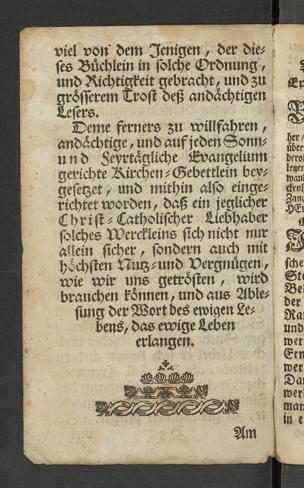 viel von dem Jenigen, der die-
ses Büchlein in solche Ordnung,
und Richtigkeit gebracht, und zu
grösserem Trost deß andächtigen
Lesers.
Deme ferners zu willfahren,
andächtige, und auf jeden Sonn-
und Feyrtägliche Evangelium
gerichte Kirchen-Gebettlein bey-
gesetzet, und mithin also einge-
richtet worden, daß ein jeglicher
Christ-Catholischer Liebhaber
solches Werckleins sich nicht nur
allein sicher, sondern auch mit
höchsten Nutz- und Vergnügen,
wie wir uns getrösten, wird
brauchen können, und aus Able-
sung der Wort des ewigen Le-
bens, das ewige Leben
erlangen.
Am